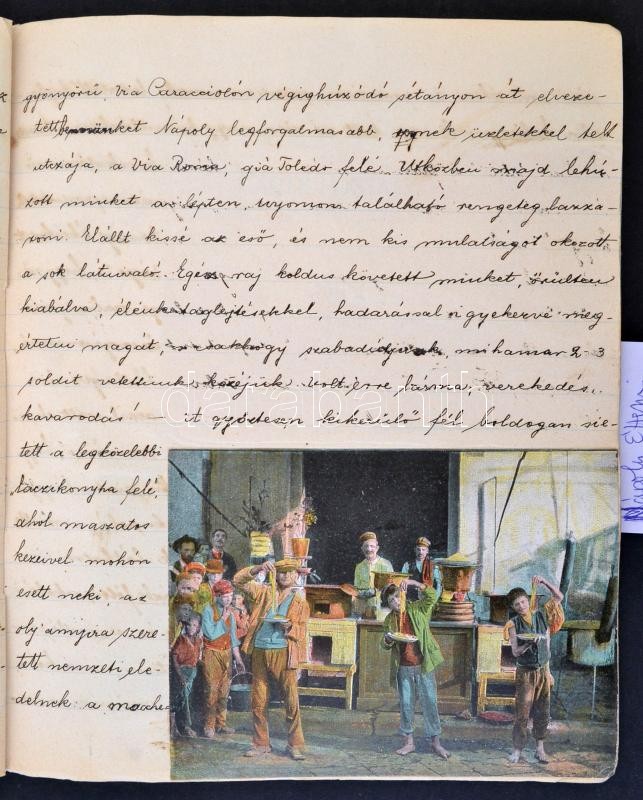 gyönyörű, via Caracciolón végighúzódó sétányon át elveze-
tett bennünket Nápoly legforgalmasabb, üzletekkel telt
utczája, a Via Roma, già Toledo felé. Útközben majd lehú-
zott minket az lépten, nyomon található rengeteg lazza-
roni. Elállt kissé az eső, és nem kis mulatságot okozott
a sok látnivaló. Egész raj koldus követett minket, őrülten
kiabálva, élénk taglejtésekkel, hadarással igyekezve meg-
értetni magát, szabaduljunk, mihamar 2-3
soldit vetettünk közéjük. Volt erre lárma, verekedés,
kavarodás! – it győztesen kikerülő fél boldogan sie-
tett a legközelebbi
laczikonyha felé,
ahol maszatos
kezeivel mohón
esett neki, az
oly annyira szere-
tett nemzeti ele-
delnek: a macche
Nápoly
darabanth